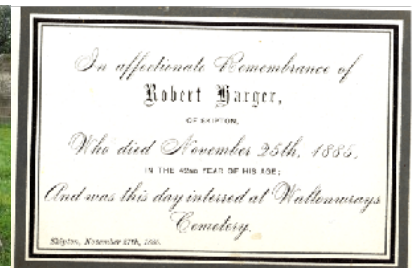 In affectionate Remembrance of
Robert Harger,
OF SKIPTON,
Who died November 25th, 1885,
IN THE 42ND YEAR OF HIS AGE;
And was this day interred at Waltonwrays
Cemetery.
Skipton, November 27th, 1885.